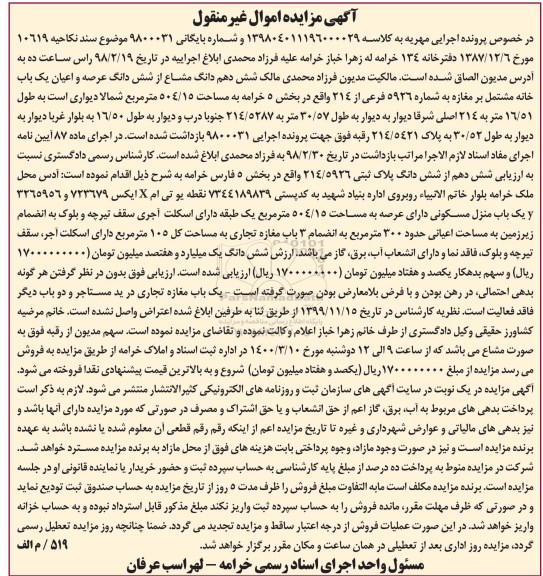 آگهی مزایده اموال غیرمنقول
در خصوص پرونده اجرایی مهریه به کلاسه ۱۳۹۸۰۴۰۱۱۱۹۶۰۰۰۰۲۹ و شماره بایگانی ۹۸۰۰۰۳۱ موضوع سند نکاحیه ۱۰۶۱۹
مورخ ۱۳۸۷/۱۲/۶ دفترخانه ۱۳۴ خرامه له زهرا خباز خرامه علیه فرزاد محمدی ابلاغ اجراییه در تاریخ ۹۸/۲/۱۹ راس ساعت ده به
آدرس مدیون الصاق شده است. مالکیت مدیون فرزاد محمدی مالک شش دهم دانگ مشاع از شش دانگ عرصه و اعیان یک باب
خانه مشتمل بر مغازه به شماره ۵۹۲۶ فرعی از ۲۱۴ واقع در بخش ۵ خرامه به مساحت ۵۰۴/۱۵ مترمربع شمالا دیواری است به طول
۱۶/۵۱ متر به ۲۱۴ اصلی شرقا دیوار به دیوار به طول ۳۰/۵۷ متر به ۲۱۴/۵۲۸۷ جنوبا درب و دیوار به طول ۱۶/۵۰ به بلوار غربا دیوار به
دیوار به طول ۳۰/۵۲ به پلاک ۲۱۴/۵۴۲۱ رقبه فوق جهت پرونده اجرایی ۹۸۰۰۰۳۱ بازداشت شده است. در اجرای ماده ۸۷ آیین نامه
اجرای مفاد اسناد لازم الاجرا مراتب بازداشت در تاریخ ۹۸/۲/۳۰ به فرزاد محمدی ابلاغ شده است. کارشناس رسمی دادگستری نسبت
به ارزیابی شش دهم از شش دانگ پلاک ثبتی ۲۱۴/۵۹۲۶ واقع در بخش ۵ فارس خرامه به شرح ذیل اقدام نموده است: آدرس محل
ملک خرامه بلوار خاتم الانبیاء روبروی اداره بنیاد شهید به کدپستی ۷۳۴۴۱۸۹۸۳۹ نقطه یو تی ام X ایکس ۷۲۳۶۷۹ و ۳۲۶۵۹۵۶
y یک باب منزل مسکونی دارای عرصه به مساحت ۵۰۴/۱۵ مترمربع یک طبقه دارای اسکلت آجری سقف تیرچه و بلوک به انضمام
زیرزمین به مساحت اعیانی حدود ۳۰۰ مترمربع به انضمام ۳ باب مغازه تجاری به مساحت کل ۱۰۵ مترمربع دارای اسکلت آجر، سقف
تیرچه و بلوک، فاقد نما و دارای انشعاب آب، برق، گاز می باشد. ارزش شش دانگ یک میلیارد و هفتصد میلیون تومان (۱۷۰۰۰۰۰۰۰۰۰
ریال) و سهم بدهکار یکصد و هفتاد میلیون تومان (۱۷۰۰۰۰۰۰۰۰ ریال) ارزیابی شده است. ارزیابی فوق بدون در نظر گرفتن هر گونه
بدهی احتمالی، در رهن بودن و با فرض بلامعارض بودن صورت گرفته است – یک باب مغازه تجاری در ید مستاجر و دو باب دیگر
فاقد فعالیت است. نظریه کارشناس در تاریخ ۱۳۹۹/۱۱/۱۵ از طریق ثنا به طرفین ابلاغ شده اعتراض واصل نشده است. خانم مرضیه
کشاورز حقیقی وکیل دادگستری از طرف خانم زهرا خباز اعلام وکالت نموده و تقاضای مزایده نموده است. سهم مدیون از رقبه فوق به
صورت مشاع می باشد که از ساعت ۹ الی ۱۲ دوشنبه مورخ ۱۴۰۰/۳/۱۰ در اداره ثبت اسناد و املاک خرامه از طریق مزایده به فروش
می رسد مزایده از مبلغ ۱۷۰۰۰۰۰۰۰۰ ریال (یکصد و هفتاد میلیون تومان) شروع و به بالاترین قیمت پیشنهادی نقدا فروخته می شود.
آگهی مزایده در یک نوبت در سایت آگهی های سازمان ثبت و روزنامه های الکترونیکی کثیرالانتشار منتشر می شود. لازم به ذکر است
پرداخت بدهی های مربوط به آب، برق، گاز اعم از حق انشعاب و یا حق اشتراک و مصرف در صورتی که مورد مزایده دارای آنها باشد و
نیز بدهی های مالیاتی و عوارض شهرداری و غیره تا تاریخ مزایده اعم از اینکه رقم رقم قطعی آن معلوم شده یا نشده باشد به عهده
برنده مزایده است و نیز در صورت وجود مازاد، وجوه پرداختی بابت هزینه های فوق از محل مازاد به برنده مزایده مسترد خواهد شد.
شرکت در مزایده منوط به پرداخت ده درصد از مبلغ پایه کارشناسی به حساب سپرده ثبت و حضور خریدار یا نماینده قانونی او در جلسه
مزایده است. برنده مزایده مکلف است مابه التفاوت مبلغ فروش را ظرف مدت ۵ روز از تاریخ مزایده به حساب صندوق ثبت تودیع نماید
و در صورتی که ظرف مهلت مقرر، مانده فروش را به حساب سپرده ثبت واریز نکند مبلغ مذکور قابل استرداد نبوده و به حساب خزانه
واریز خواهد شد. در این صورت عملیات فروش از درجه اعتبار ساقط و مزایده تجدید می گردد. ضمنا چنانچه روز مزایده تعطیل رسمی
گردد، مزایده روز اداری بعد از تعطیلی در همان ساعت و مکان مقرر برگزار خواهد شد. ۵۱۹ / م الف
مسئول واحد اجرای اسناد رسمی خرامه – لهراسب عرفان